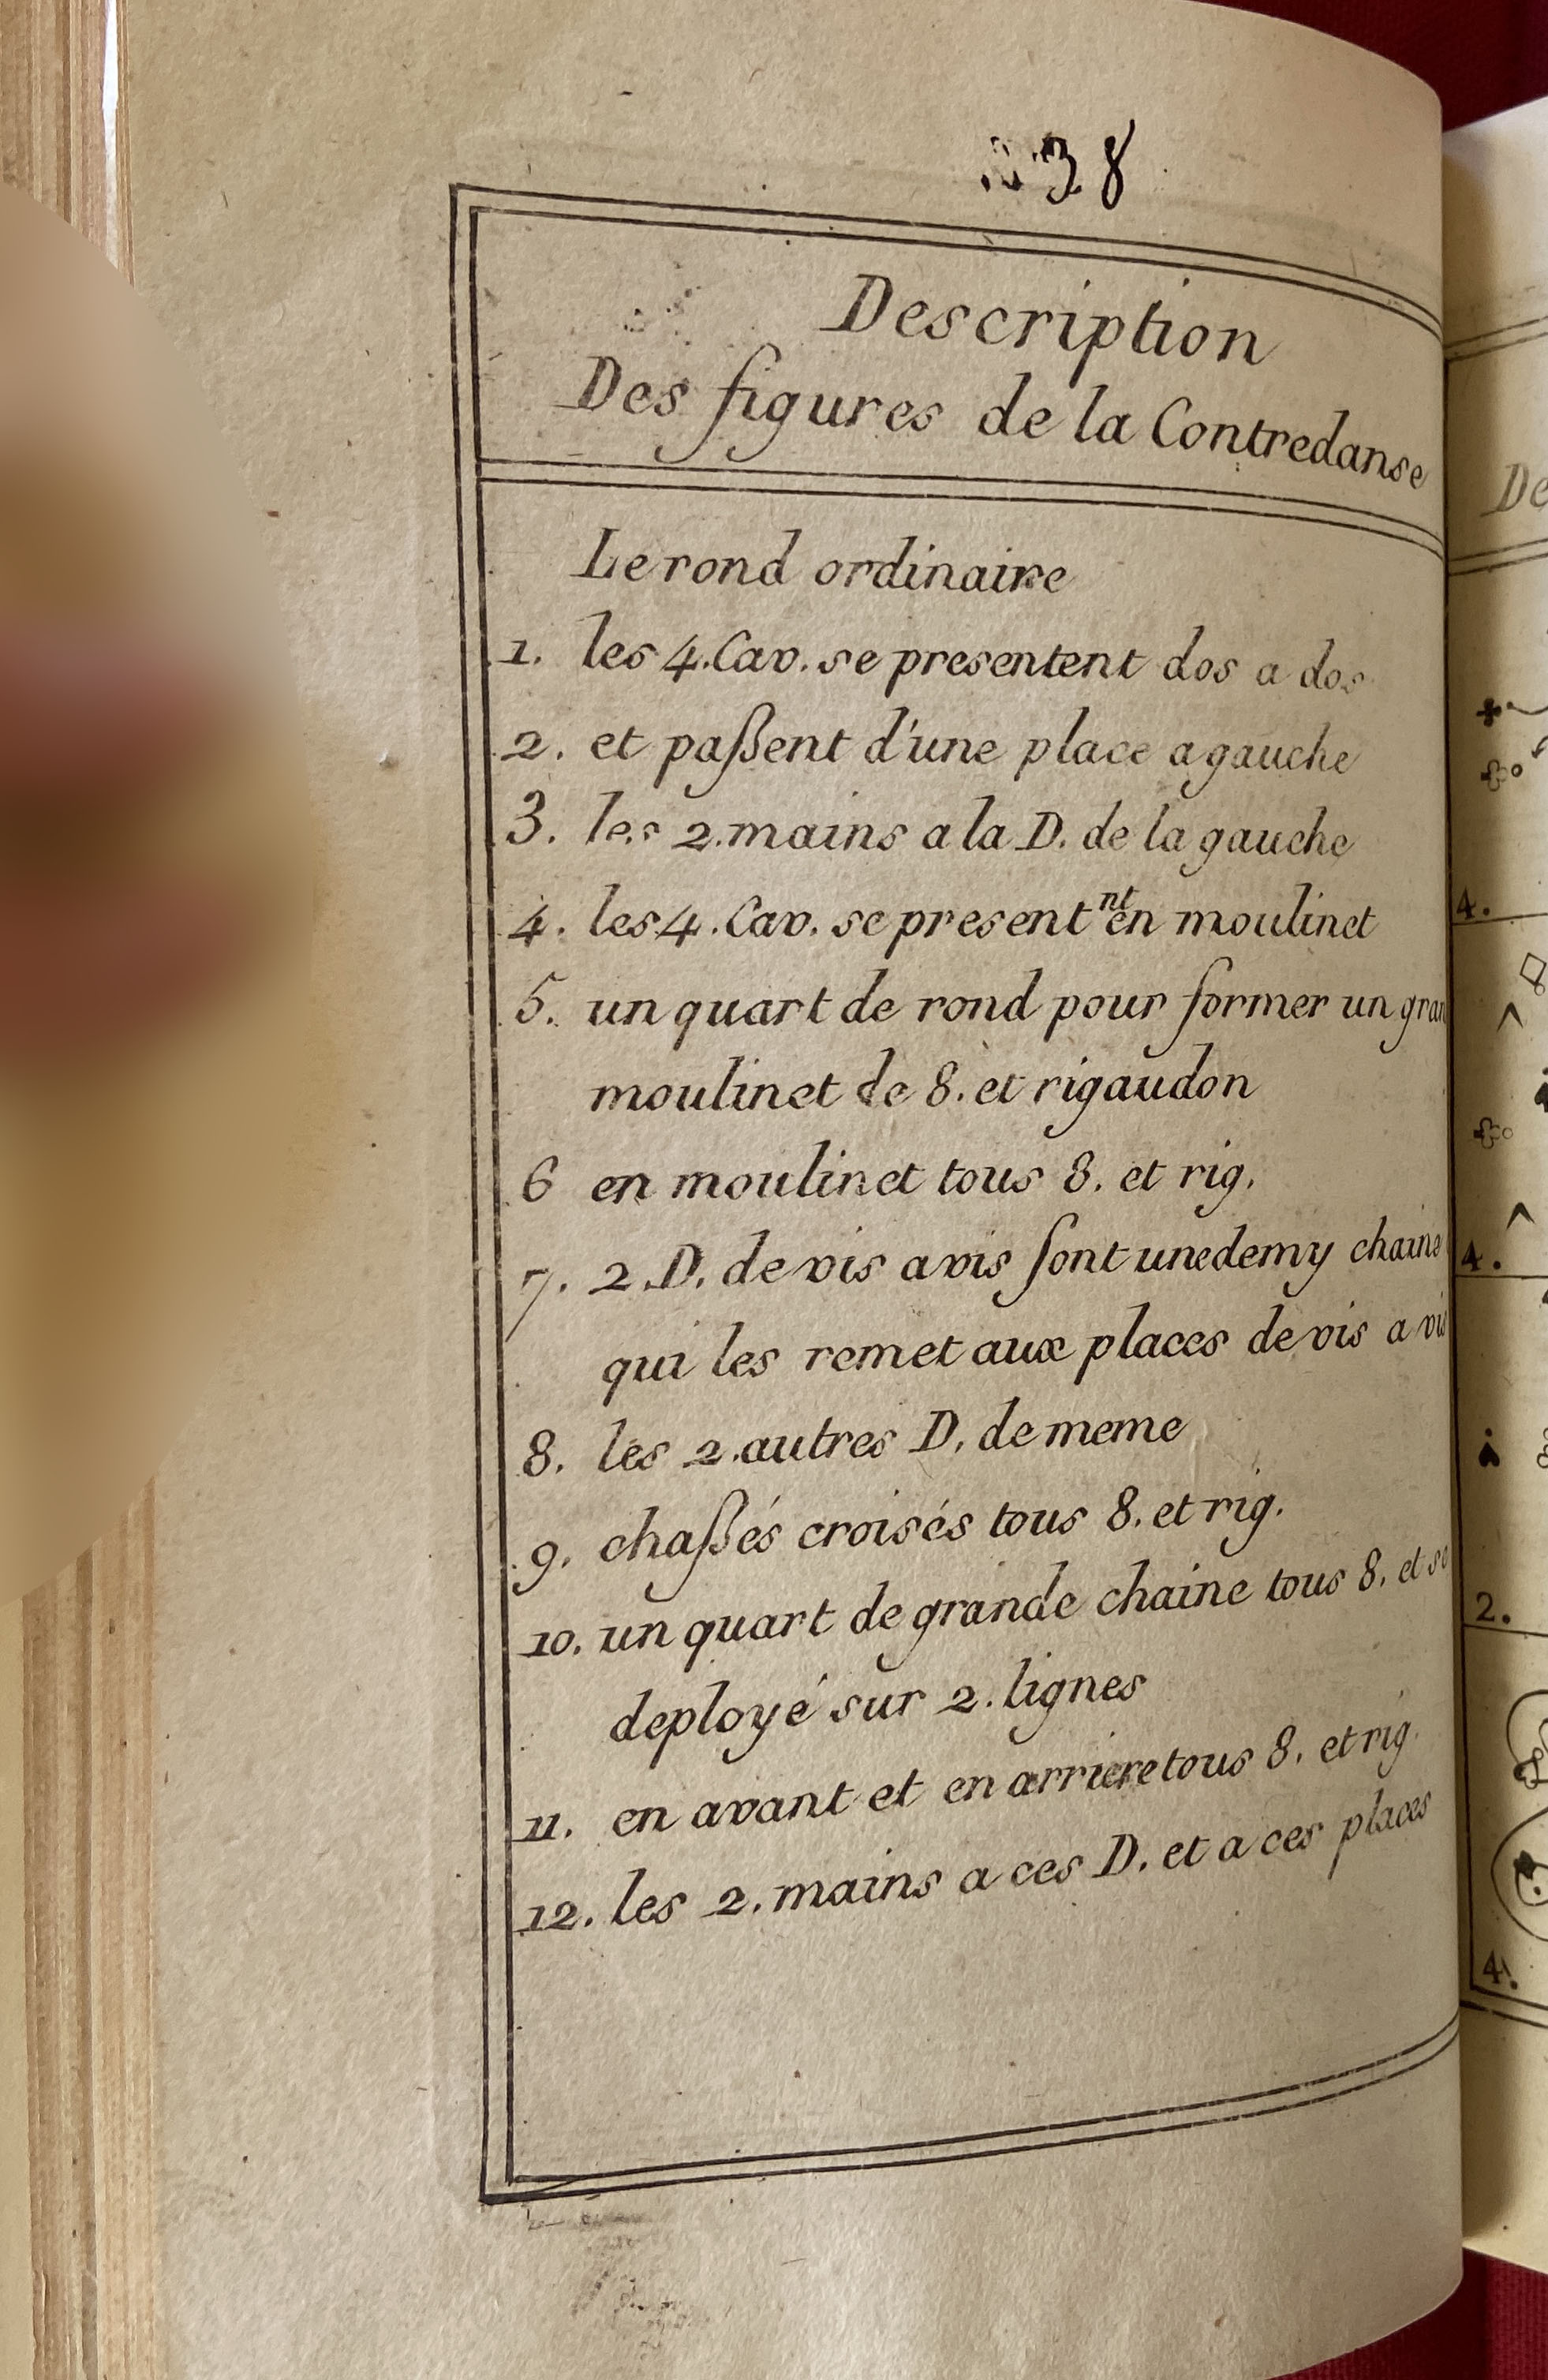 38
Description
Des figures de la Contredanse
Le rond ordinaire
1. les 4. Cav. se presentent dos a dos
2. et paßent d'une place a gauche
3. les 2. mains a la D. de la gauche
4. les 4. Cav. se present^nt en moulinet
5. un quart de rond pour former un gran
moulinet de 8. et rigaudon
6 en moulinet tous 8. et rig.
7. 2. D. de vis a vis font une demy chaine
qui les remet aux places de vis a vis
8. les 2. autres D. de meme
9. chaßés croisés tous 8. et rig.
10. un quart de grande chaine tous 8. et se
deployé sur 2. lignes
11. en avant et en arriere tous 8. et rig.
12. les 2. mains a ces D. et a ces places
De
4.
4.
2.
4.